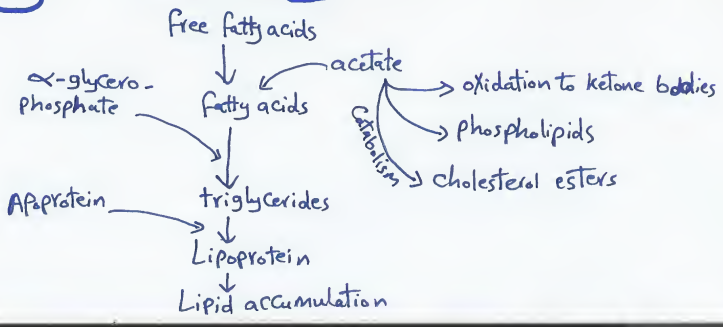 Free fatty acids
acetate
α-glycero-
phosphate
fatty acids
oxidation to ketone bodies
phospholipids
Catabolism
cholesterol esters
Apoprotein
triglycerides
Lipoprotein
Lipid accumulation